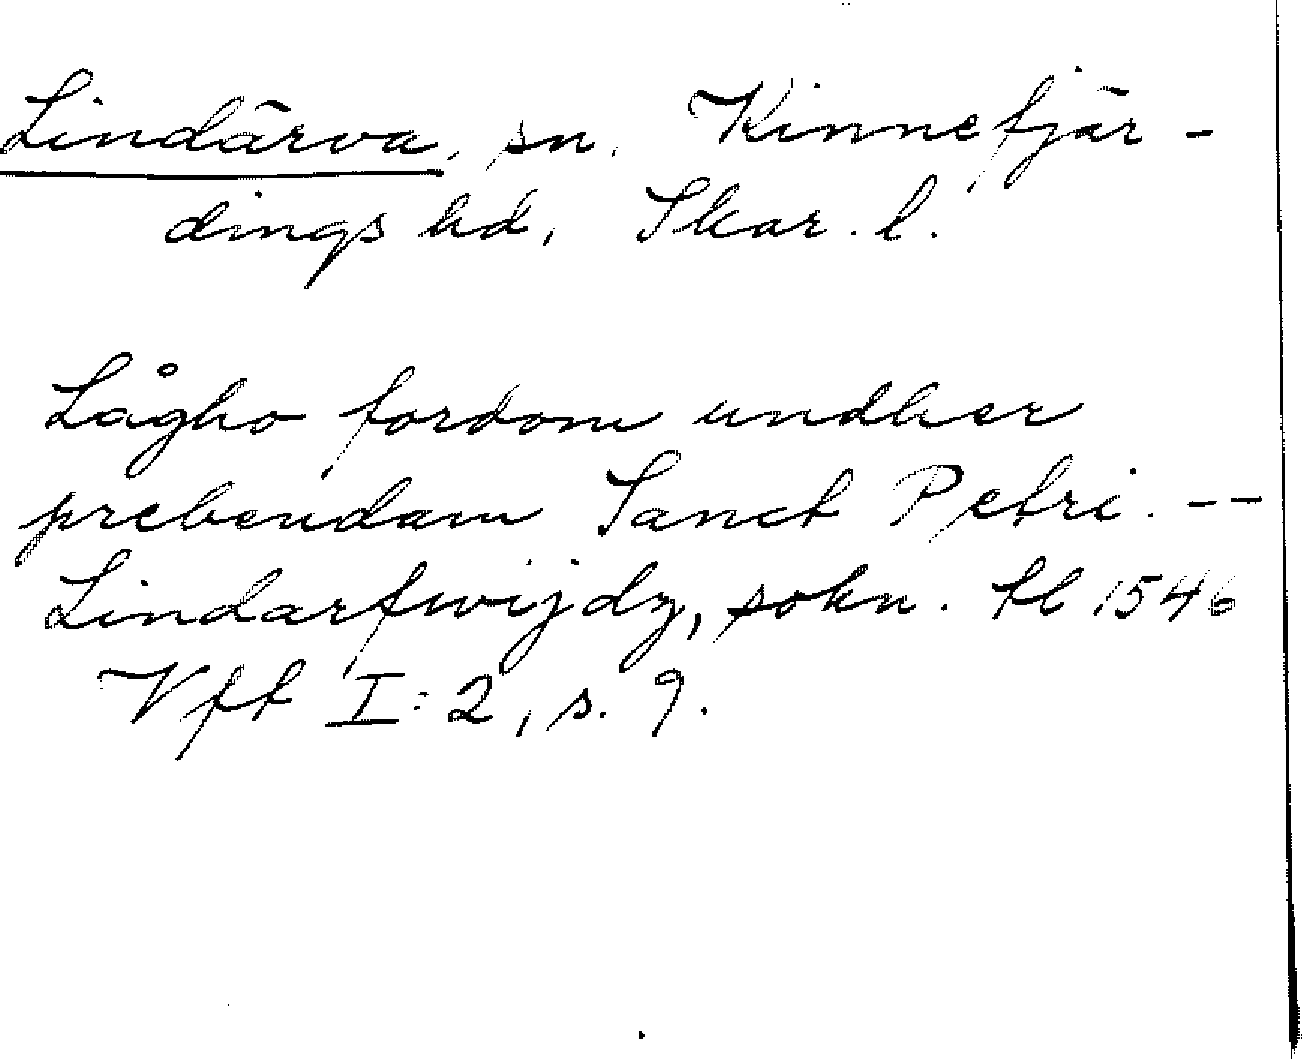 Lindärva, sn. Kinnefjär-
dings hd, Skar. l.
Lågho fordom undher
prebendam Sanct Petri. --
Lindarfwijdz, sokn. fl 1546
Vff I:2, s. 9.